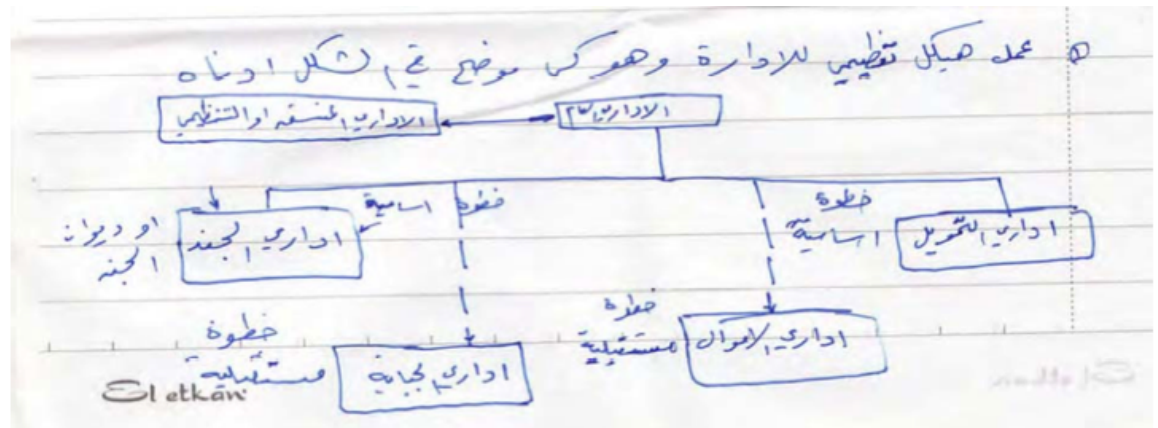 عمل هيكل تنظيمي للادارة وهو كما موضح في الشكل ادناه
الاداري العام
الاداري المنسق او التنظيمي
خطوة اساسية
خطوة اساسية
اداري التمويل
اداري الجند
او ديوان الجند
خطوة مستقبلية
اداري الاموال
خطوة مستقبلية
اداري الجباية
El etkan